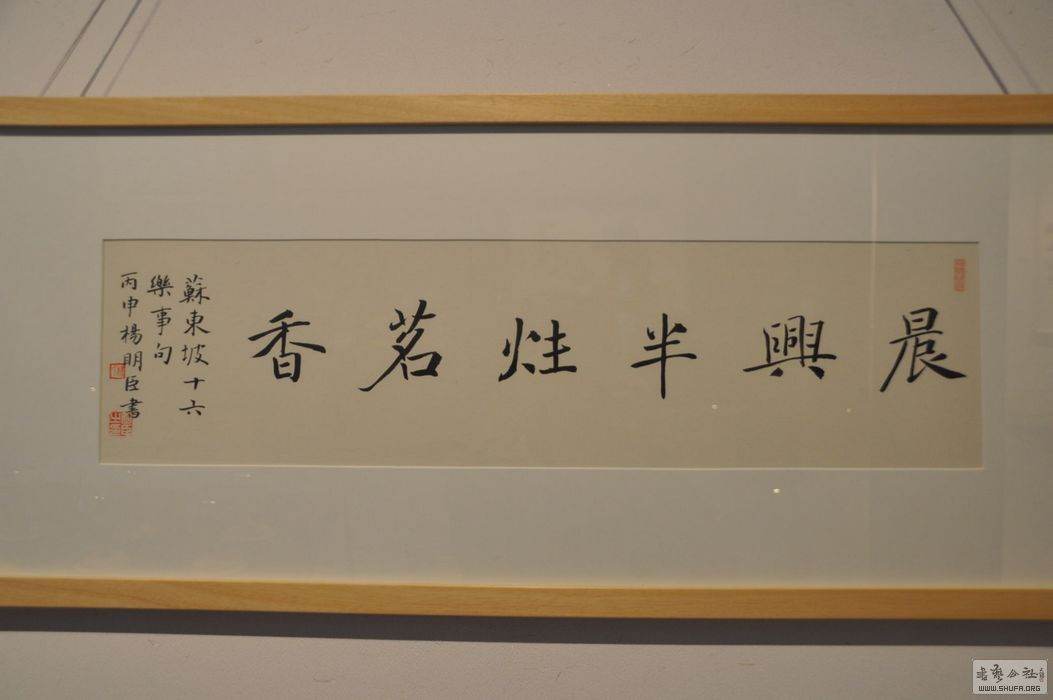 晨興半炷茗香
蘇東坡十六
樂事句
丙申楊明臣書
書藝公社
WWW.SHUFA.ORG